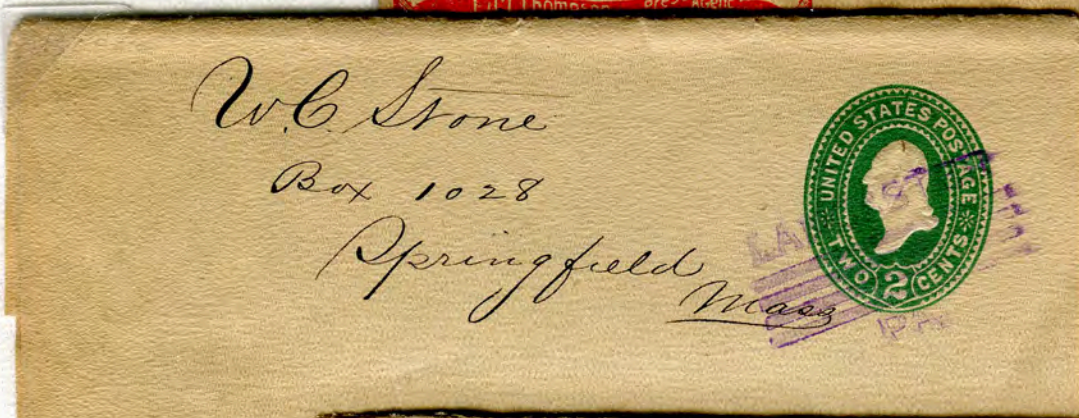 Thompson
W.C. Stone
Box 1028
Springfield
Mass
UNITED STATES POSTAGE
TWO 2 CENTS
PA